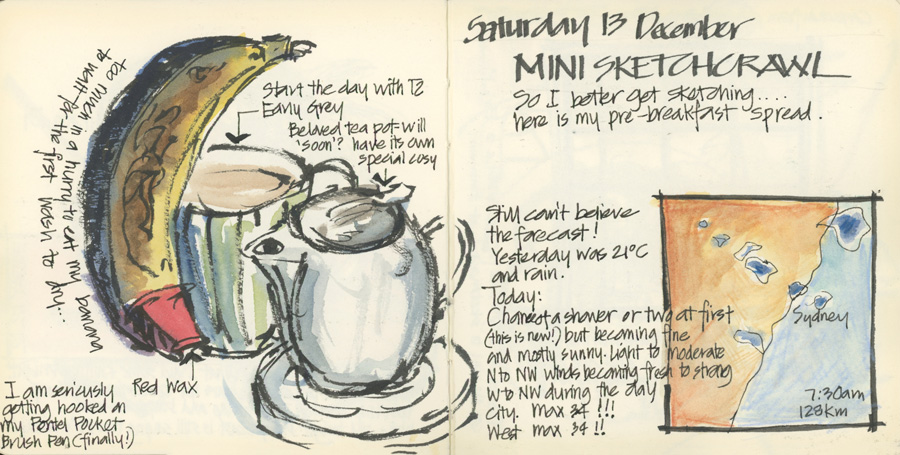 too much in a hurry to eat my banana
to wait for the first wash to dry...
Start the day with T2
Early Grey
Beloved tea pot will
'soon'? have its own
special cosy
Red wax
I am seriously
getting hooked on
my Pentel Pocket
Brush Pen (finally!)
Saturday 13 December
MINI SKETCHCRAWL
So I better get sketching....
here is my pre-breakfast spread.
Still can't believe
the forecast!
Yesterday was 21°C
and rain.
Today:
Chance of a shower or two at first
(this is new!) but becoming fine
and mostly sunny. Light to moderate
N to NW winds becoming fresh to strong
W to NW during the day
City. max 34 !!!
West max 34 !!
Sydney
7:30am
128km